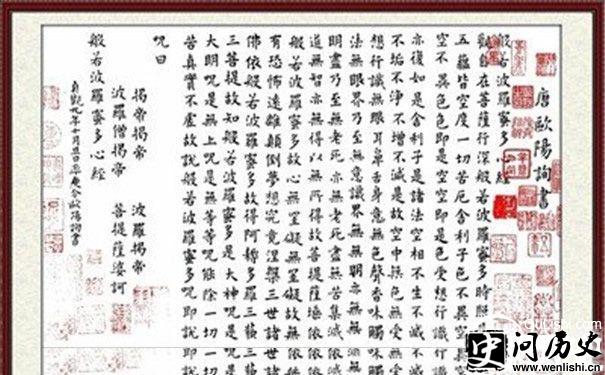 唐歐陽詢書
般若波羅蜜多心經
觀自在菩薩行深般若波羅蜜多時照
五蘊皆空度一切苦厄舍利子色不異空
空不異色色即是空空即是色受想行識
亦復如是舍利子是諸法空相不生不滅不
不垢不淨不增不減是故空中無色無受無
想行識無眼耳鼻舌身意無色聲香味觸
法無眼界乃至無意識界無無明亦無無
明盡乃至無老死亦無老死盡無苦集滅
道無智亦無得以無所得故菩提薩埵依
般若波羅蜜多故心無罣礙無罣礙故無
有恐怖遠離顛倒夢想究竟涅槃三世諸
佛依般若波羅蜜多故得阿耨多羅三藐三
三菩提故知般若波羅蜜多是大神呪是
大明呪是無上呪是無等等呪能除一切
苦真實不虛故說般若波羅蜜多呪即說
呪曰
揭帝揭帝 波羅揭帝
波羅僧揭帝 菩提薩婆訶
般若波羅蜜多心經
貞觀九年十月旦日率更令歐陽詢書
问历史
www.wenlishi.cn